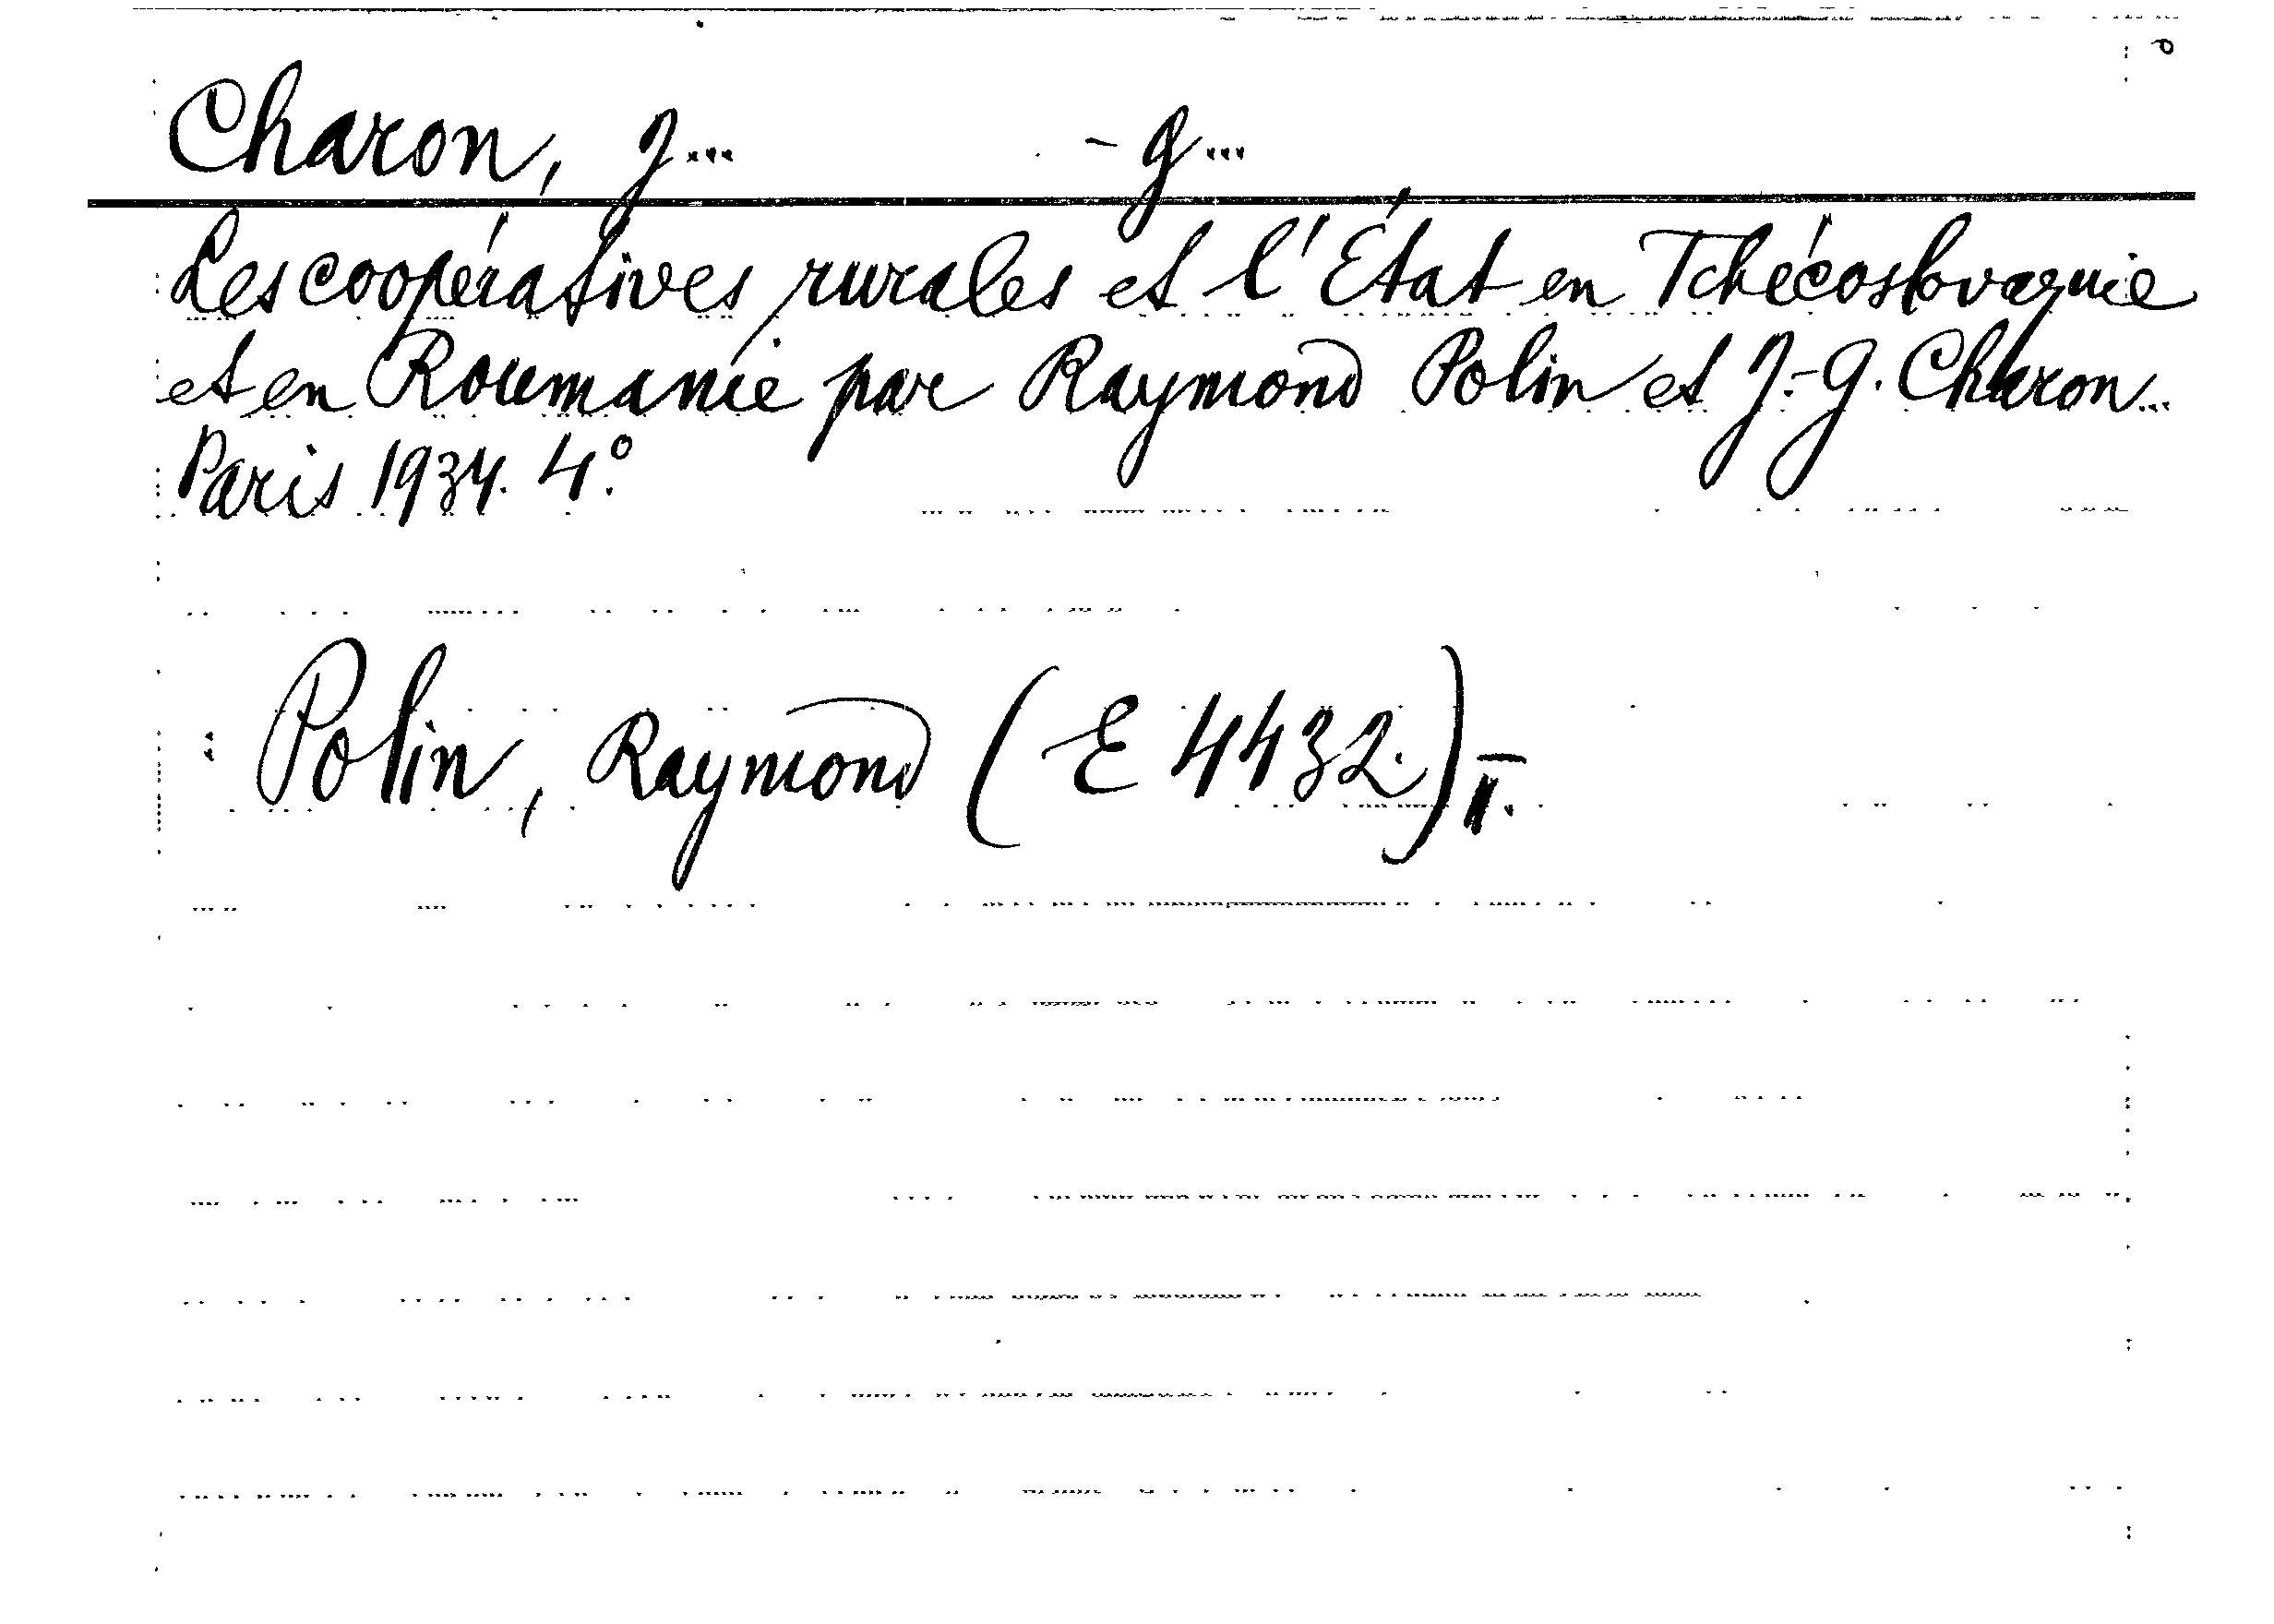 Charon, J... -G...
Les coopératives rurales et l'État en Tchécoslovaquie
et en Roumanie par Raymond Polin et J.-G. Charon...
Paris 1934. 4°.
: Polin, Raymond (E 4432.) II.